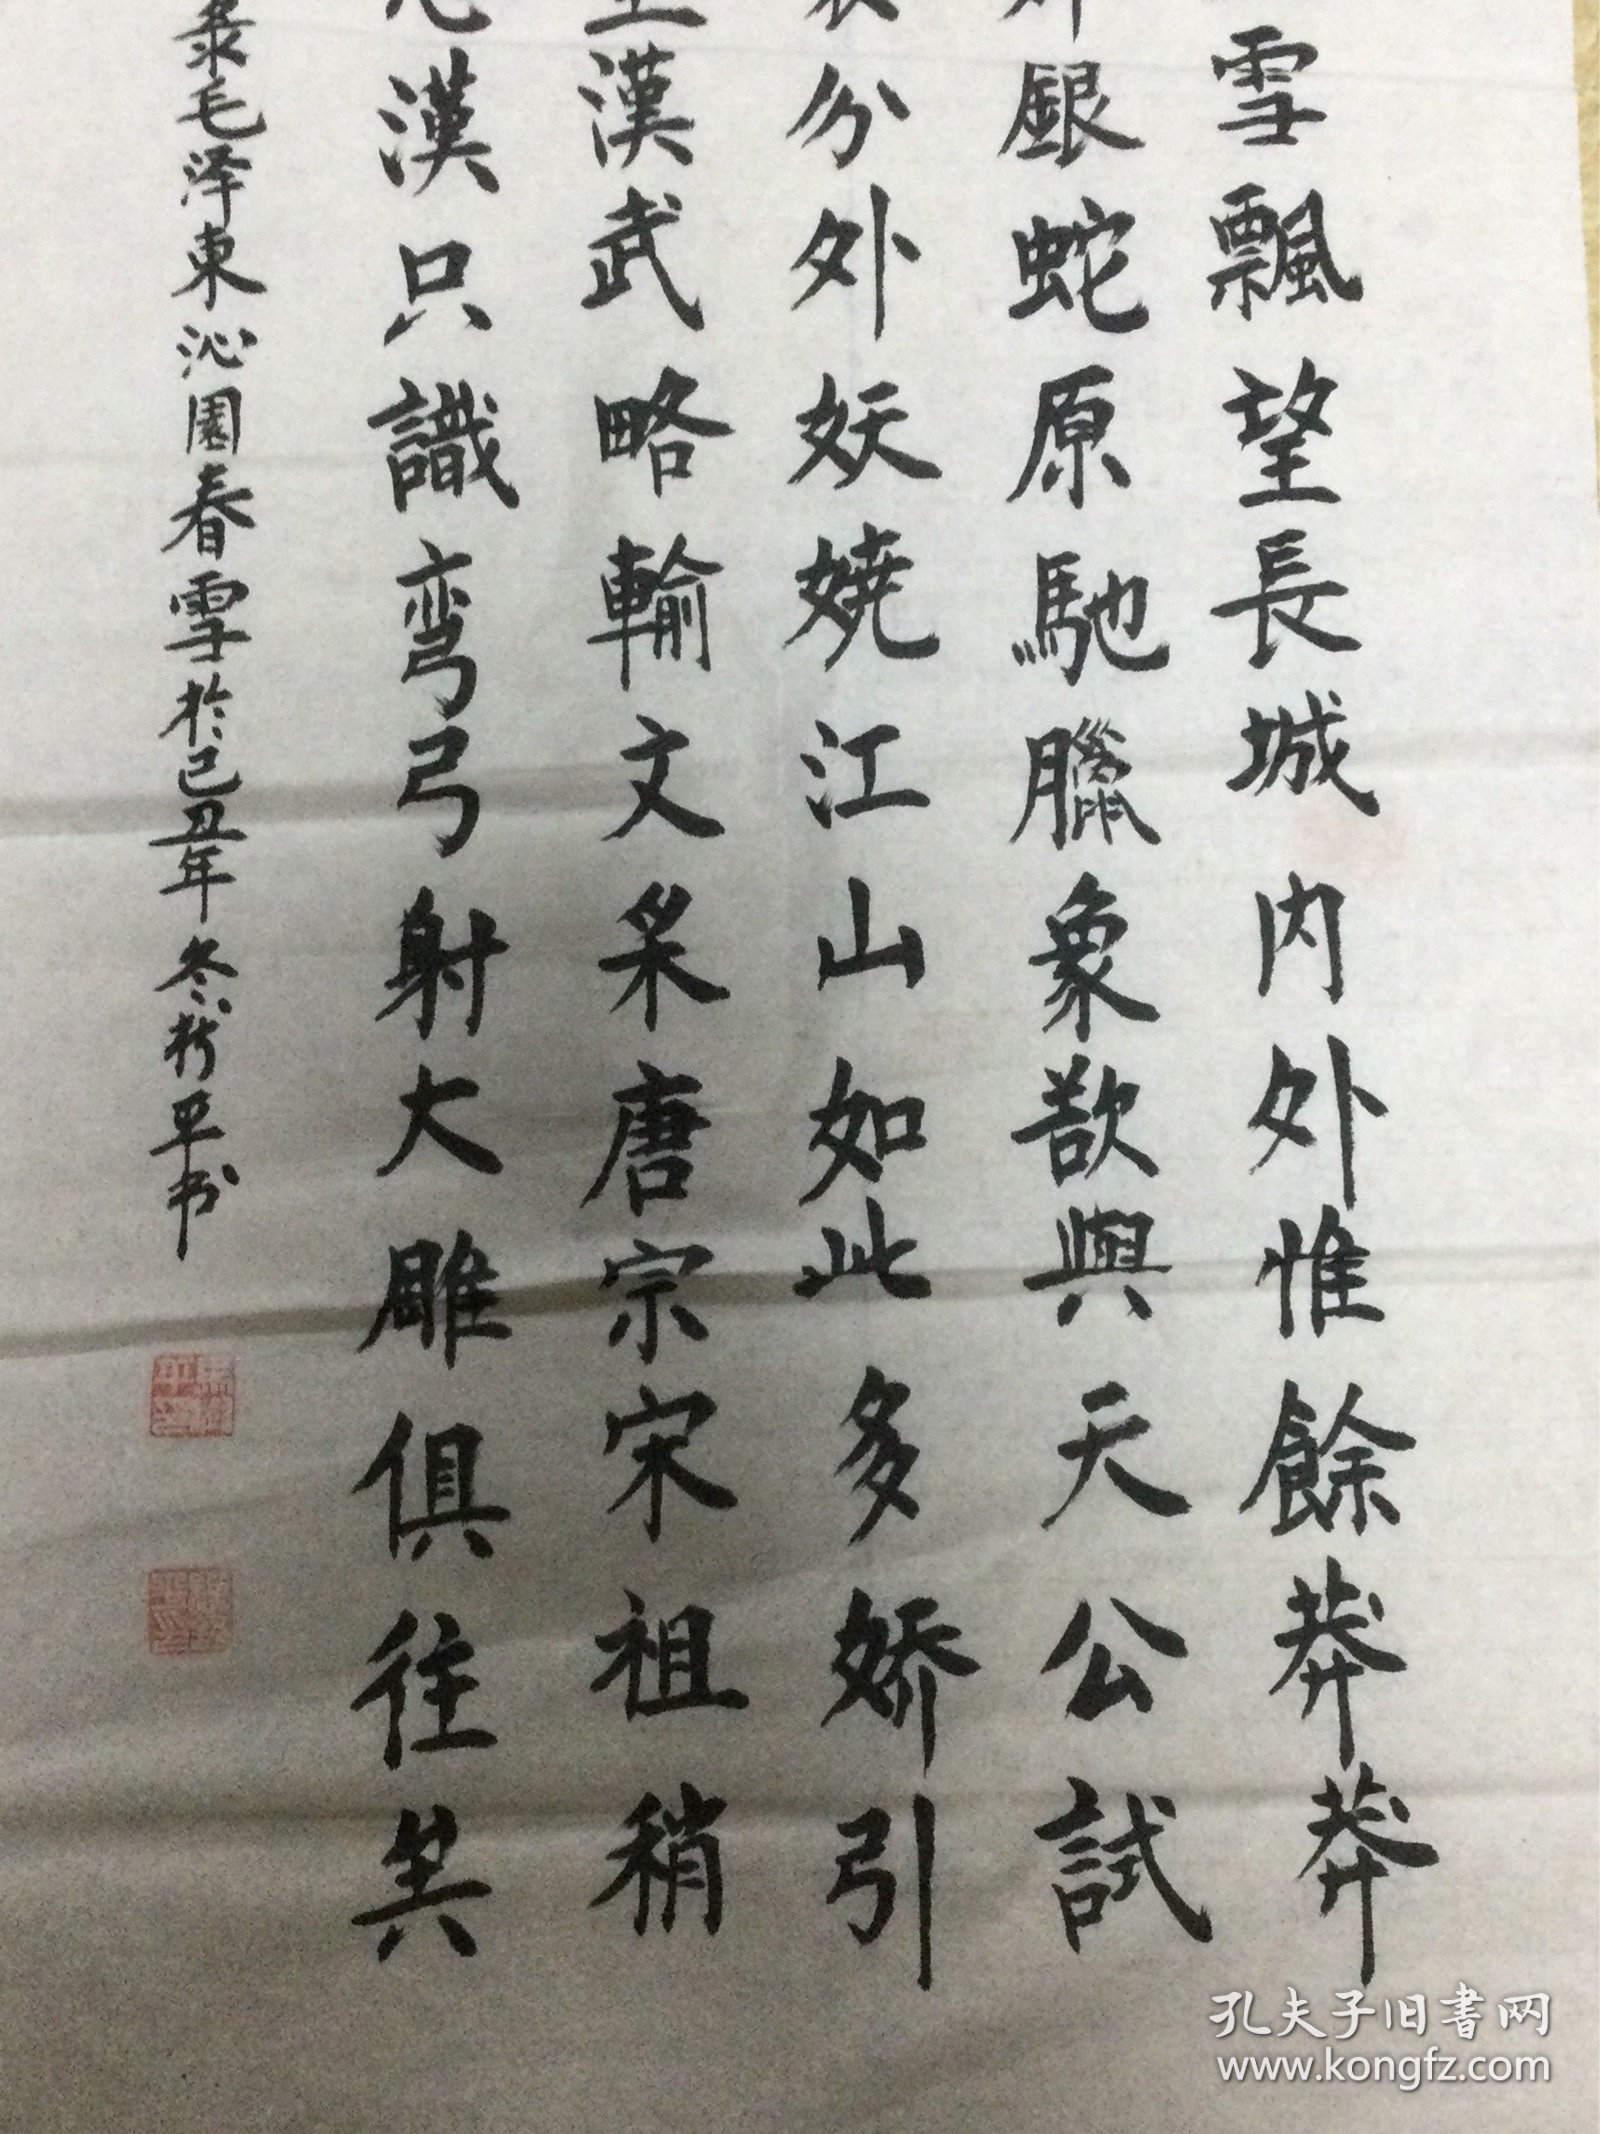 雪飄望長城内外惟餘莽莽
銀蛇原馳臘象欲與天公試
分外妖嬈江山如此多娇引
漢武略輸文采唐宗宋祖稍
漢只識弯弓射大雕俱往矣
录毛泽東沁園春雪於己丑年冬 平书
孔夫子旧書网
www.kongfz.com